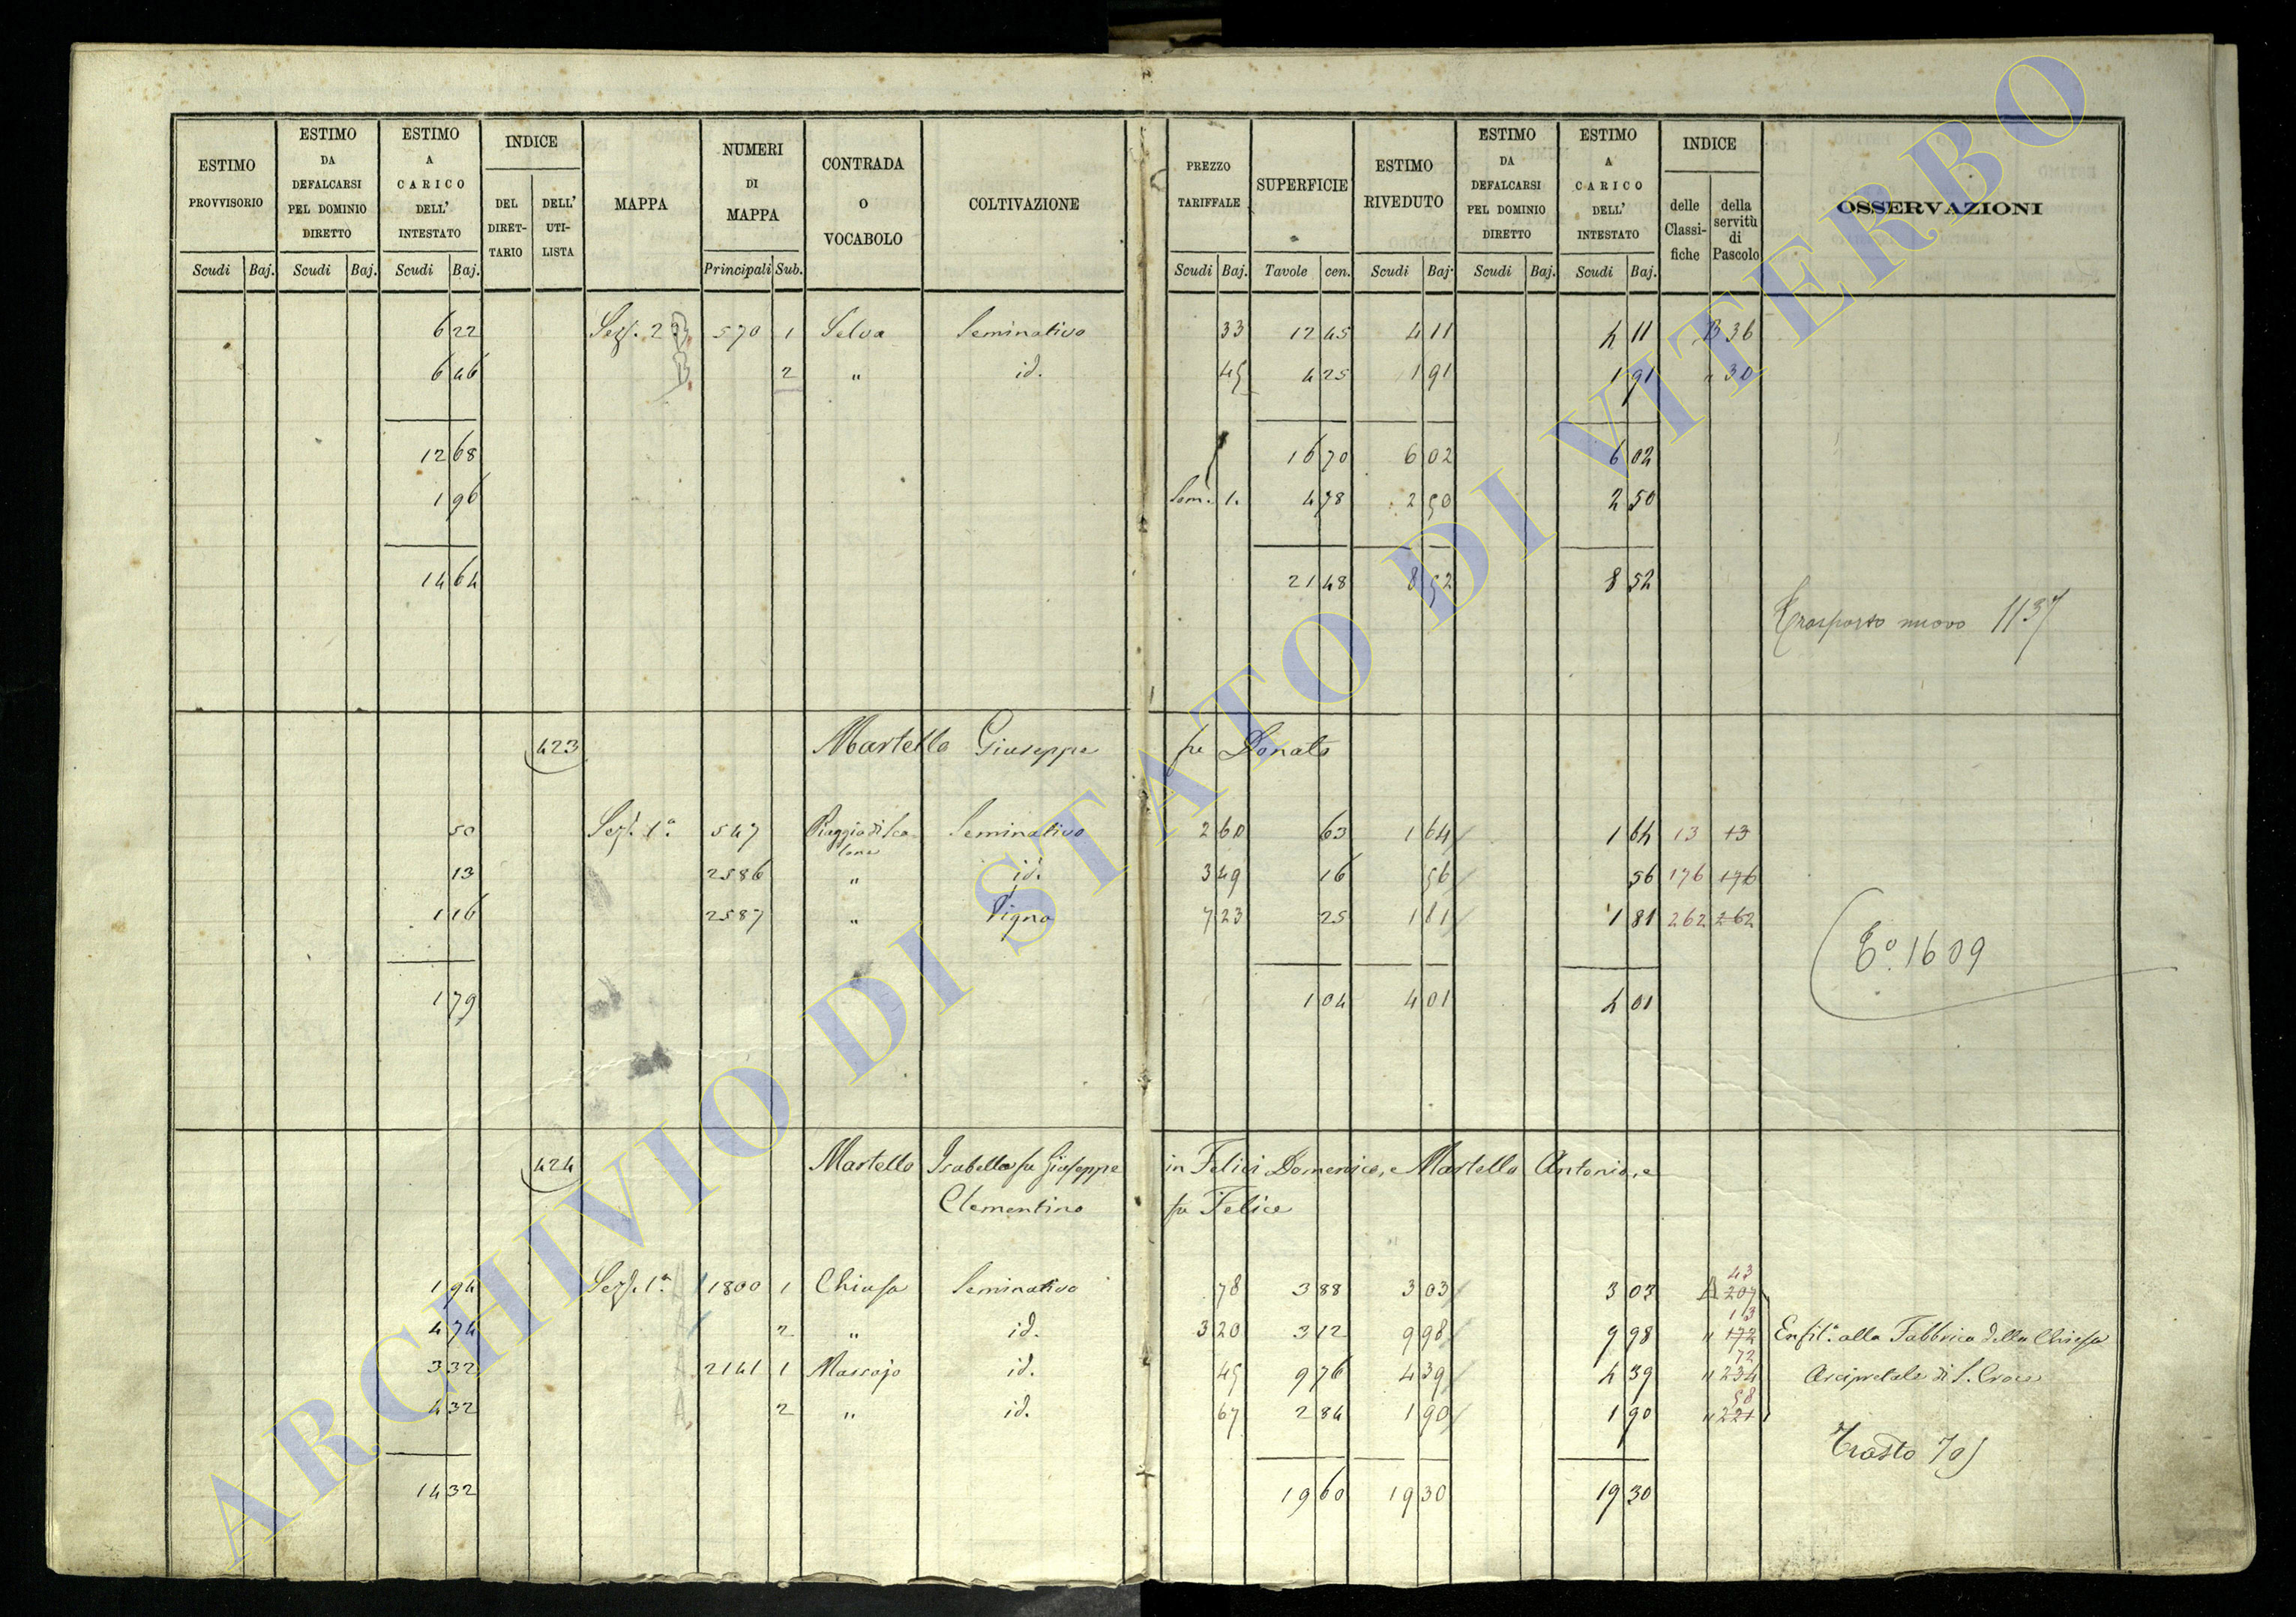 ESTIMO PROVVISORIO | ESTIMO DA DEFALCARSI PEL DOMINIO DIRETTO | ESTIMO A CARICO DELL' INTESTATO | INDICE | MAPPA | NUMERI DI MAPPA | CONTRADA O VOCABOLO | COLTIVAZIONE | PREZZO TARIFFALE | SUPERFICIE | ESTIMO RIVEDUTO | ESTIMO DA DEFALCARSI PEL DOMINIO DIRETTO | ESTIMO A CARICO DELL' INTESTATO | INDICE | OSSERVAZIONI
DEL DIRET-TARIO | DELL' UTI-LISTA | delle Classi-fiche | della servitù di Pascolo
Scudi Baj. | Scudi Baj. | Scudi Baj. | Principali Sub. | Scudi Baj. | Tavole cen. | Scudi Baj. | Scudi Baj. | Scudi Baj.
6 22 Sez. 2 B 570 1 Selva Seminativo 33 12 45 4 11 4 11 B 36
6 46 B 2 " id. 45 4 25 1 91 1 91 " 30
12 68 16 70 6 02 6 02
1 96 Som. 1. 4 78 2 50 2 50
14 64 21 48 8 52 8 52
Trasporto nuovo 1137
423 Martello Giuseppe fu Donato
50 Sez. 1a 547 Seminativo 2 60 63 1 64 1 64 13 13
13 2586 " id. 3 49 16 56 56 176 176
1 16 2587 " Vigna 7 23 25 1 81 1 81 262 262
To. 1609
1 79 1 04 4 01 4 01
424 Martello Isabella fu Giuseppe in Felici Domenico, e Martello Antonio, e
Clementino fu Felice
1 94 Sez. 1a A 1800 1 Chiusa Seminativo 78 3 88 3 03 3 03 A 207 43
4 74 A 2 " id. 3 20 3 12 9 98 9 98 " 172 13 Enfit. alla Fabbrica della Chiesa
3 32 A 2141 1 id. 45 9 76 4 39 4 39 " 234 72 Arcipretale di S. Croce
4 32 A 2 " id. 67 2 84 1 90 1 90 " 221 58
Trasto 705
14 32 19 60 19 30 19 30
ARCHIVIO DI STATO DI VITERBO